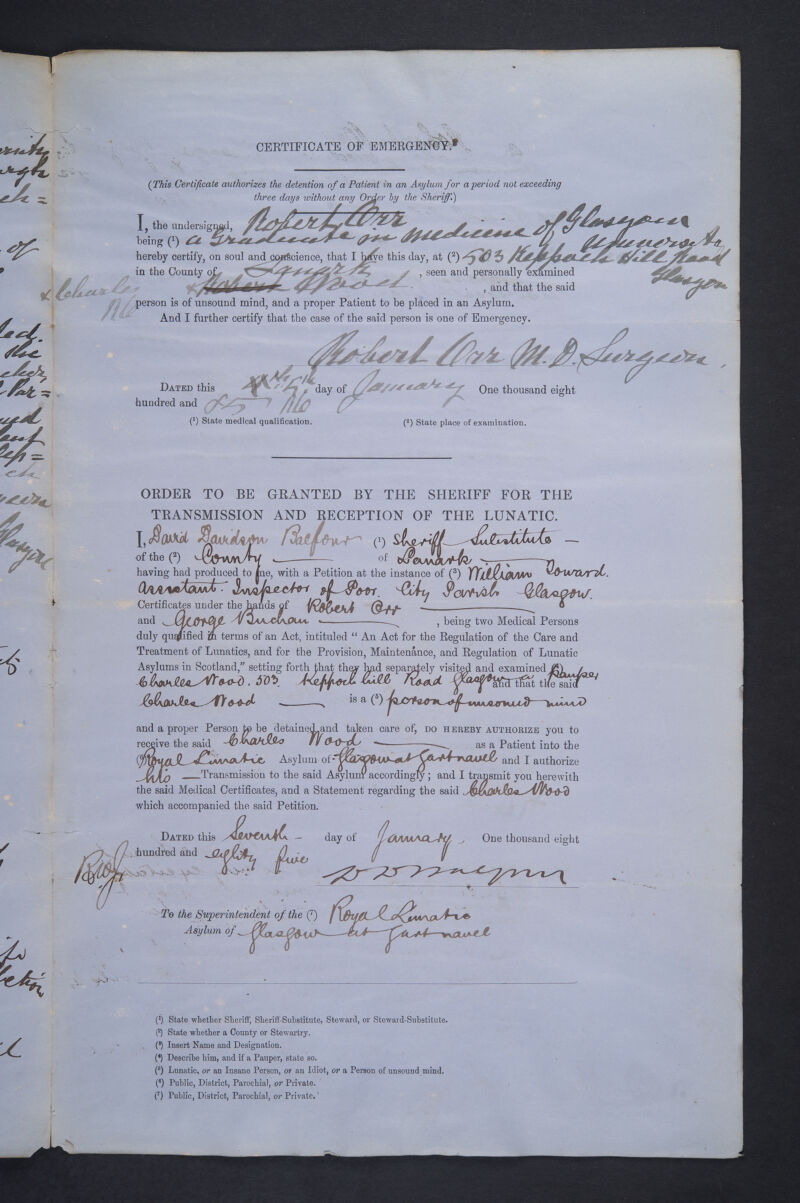 CERTIFICATE OF EMERGENCY.
(This Certificate authorizes the detention of a Patient in an Asylum for a period not exceeding
three days without any Order by the Sheriff.)
I, the undersigned, Robert Orr
being (¹) a Graduate in medicine of Glasgow University
hereby certify, on soul and conscience, that I have this day, at (²) 503 Keppoch Hill Road
Glasgow
in the County of Lanark, seen and personally examined
x Charles
RO
x Robert Wood, and that the said
person is of unsound mind, and a proper Patient to be placed in an Asylum.
And I further certify that the case of the said person is one of Emergency.
Robert Orr M.D. Surgeon.
DATED this 5th day of January One thousand eight
hundred and 85 RO
(¹) State medical qualification. (²) State place of examination.
ORDER TO BE GRANTED BY THE SHERIFF FOR THE
TRANSMISSION AND RECEPTION OF THE LUNATIC.
I, David Davidson Balfour (¹) Sheriff Substitute —
of the (²) County — of Lanark —
having had produced to me, with a Petition at the instance of (³) William Howard.
Assistant. Inspector of Poor. City Parish Glasgow.
Certificates under the hands of Robert Orr —
and George Buchan —, being two Medical Persons
duly qualified in terms of an Act, intituled "An Act for the Regulation of the Care and
Treatment of Lunatics, and for the Provision, Maintenance, and Regulation of Lunatic
Asylums in Scotland," setting forth that they had separately visited and examined (⁴)
Charles Wood. 503. Keppoch hill Road Glasgow a Pauper and that the said
Charles Wood — is a (⁵) person of unsound mind
and a proper Person to be detained and taken care of, DO HEREBY AUTHORIZE you to
receive the said Charles Wood — as a Patient into the
(⁶) Royal Lunatic Asylum of Glasgow at Gartnavel and I authorize
his — Transmission to the said Asylum accordingly; and I transmit you herewith
the said Medical Certificates, and a Statement regarding the said Charles Wood
which accompanied the said Petition.
DATED this Seventh — day of January. One thousand eight
hundred and eighty five
To the Superintendent of the (⁷) Royal Lunatic
Asylum of Glasgow at Gartnavel
(¹) State whether Sheriff, Sheriff-Substitute, Steward, or Steward-Substitute.
(²) State whether a County or Stewartry.
(³) Insert Name and Designation.
(⁴) Describe him, and if a Pauper, state so.
(⁵) Lunatic, or an Insane Person, or an Idiot, or a Person of unsound mind.
(⁶) Public, District, Parochial, or Private.
(⁷) Public, District, Parochial, or Private.